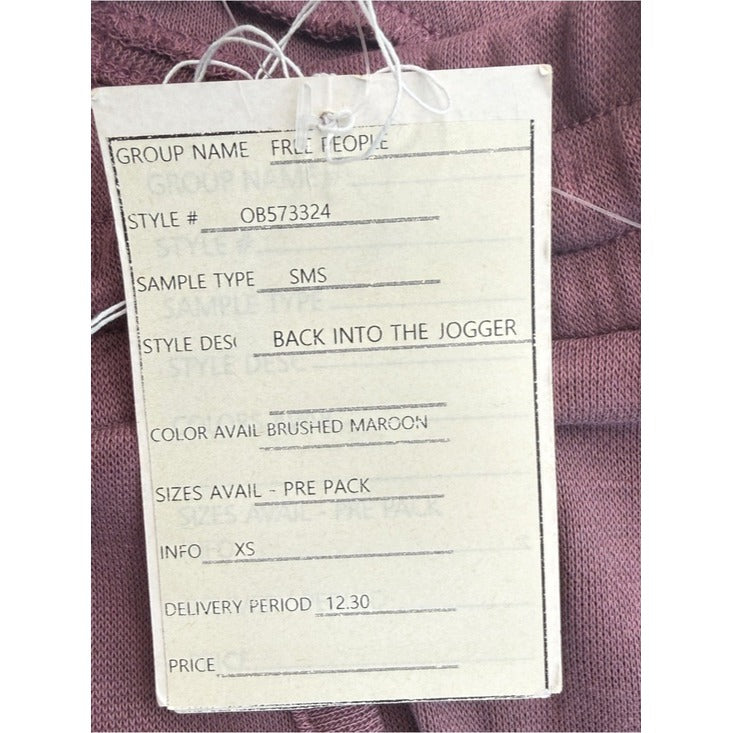 GROUP NAME FREE PEOPLE
STYLE # OB573324
SAMPLE TYPE SMS
STYLE DESC BACK INTO THE JOGGER
COLOR AVAIL BRUSHED MAROON
SIZES AVAIL - PRE PACK
INFO XS
DELIVERY PERIOD 12.30
PRICE